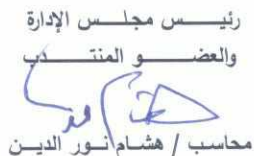 رئيس مجلس الإدارة
والعضو المنتدب
محاسب / هشام نور الدين